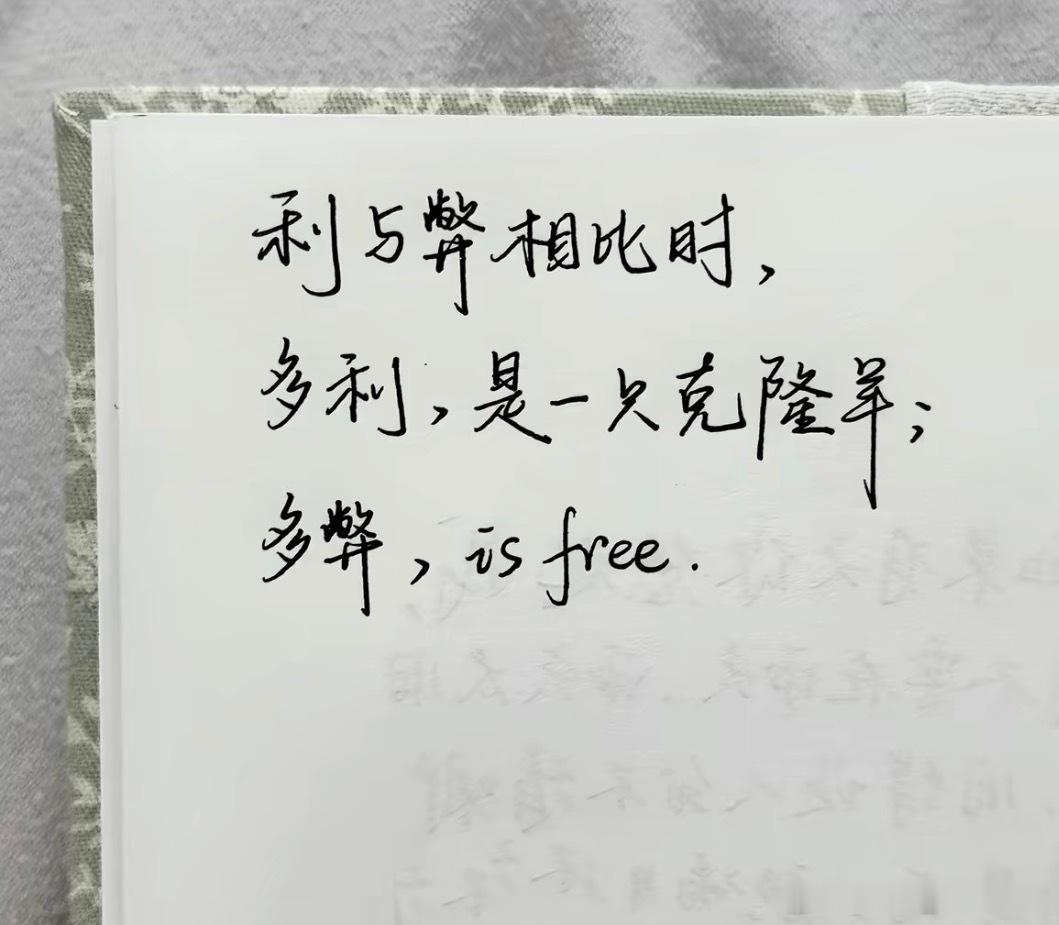 利与弊相比时，
多利，是一只克隆羊；
多弊，is free.